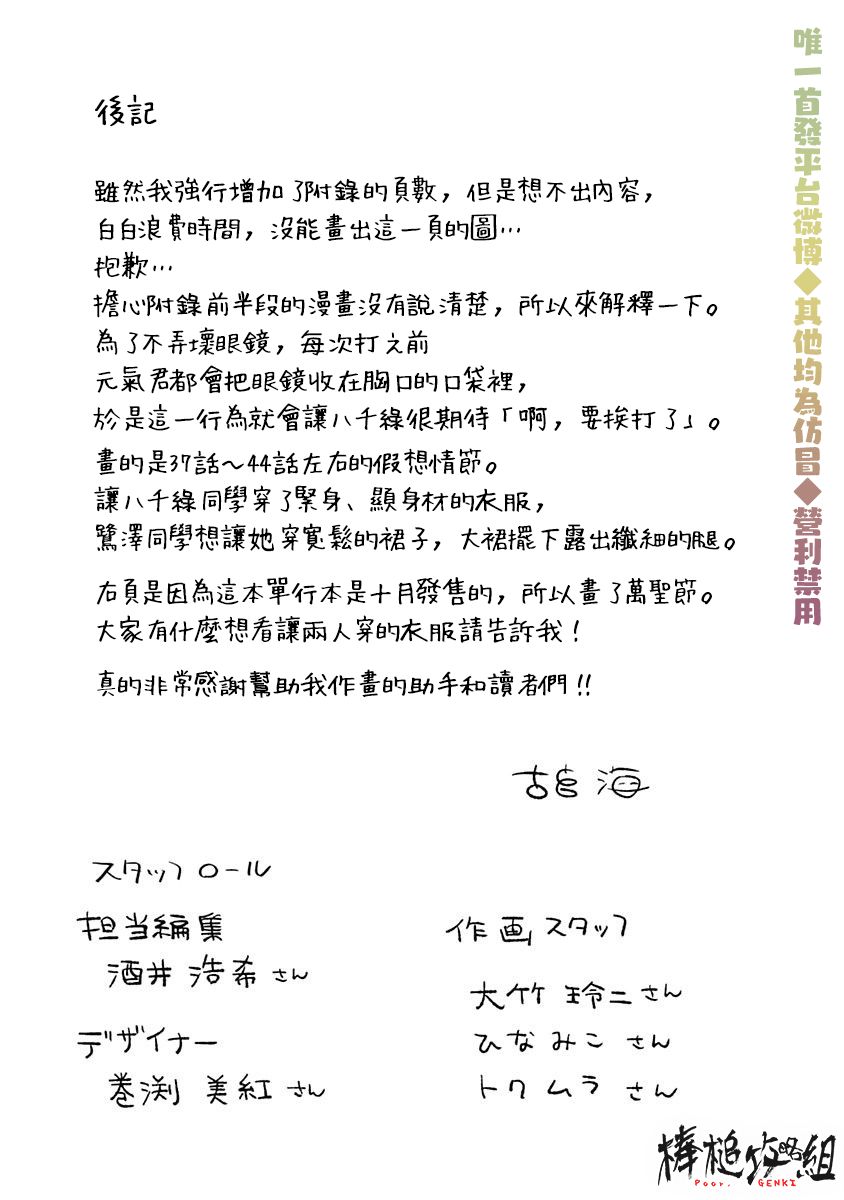 後記
雖然我強行增加了附錄的頁數，但是想不出內容，
白白浪費時間，沒能畫出這一頁的圖…
抱歉…
擔心附錄前半段的漫畫沒有說清楚，所以來解釋一下。
為了不弄壞眼鏡，每次打之前
元氣君都會把眼鏡收在胸口的口袋裡，
於是這一行為就會讓八千綠很期待「啊，要挨打了」。
畫的是37話～44話左右的假想情節。
讓八千綠同學穿了緊身、顯身材的衣服，
鷺澤同學想讓她穿寬鬆的裙子，大裙擺下露出纖細的腿。
右頁是因為這本單行本是十月發售的，所以畫了萬聖節。
大家有什麼想看讓兩人穿的衣服請告訴我！
真的非常感謝幫助我作畫的助手和讀者們！！
古宮海
スタッフロール
担当編集
酒井 浩希さん
デザイナー
巻渕 美紅さん
作画スタッフ
大竹 玲二さん
ひなみこ さん
トクムラ さん
唯一首發平台微博◆其他均為仿冒◆營利禁用
棒槌攻略組
Poor. GENKI